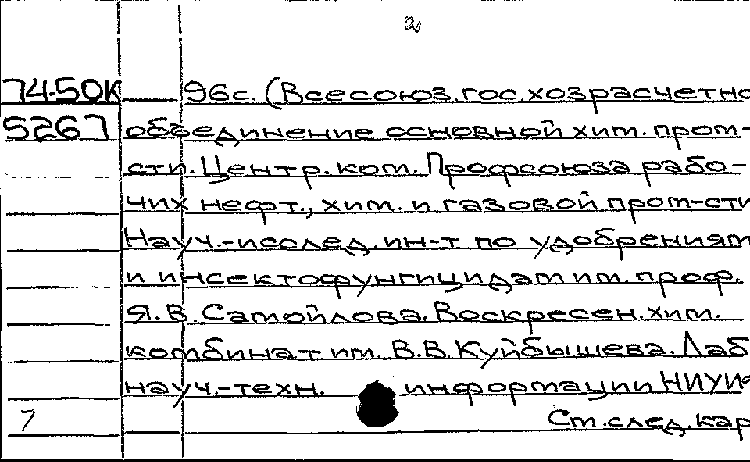 2
74-50К 96с. (Всесоюз. гос. хозрасчетно
5267 объединение основной хим. пром-
сти. Центр. ком. Профсоюза рабо-
чих нефт., хим. и газовой пром-сти
Науч.-исслед. ин-т по удобрениям
и инсектофунгицидам им. проф.
Я.В. Самойлова. Воскресен. хим.
комбинат им. В.В. Куйбышева. Лаб
науч.-техн. информации НИУИФ
7 Ст. след. кар